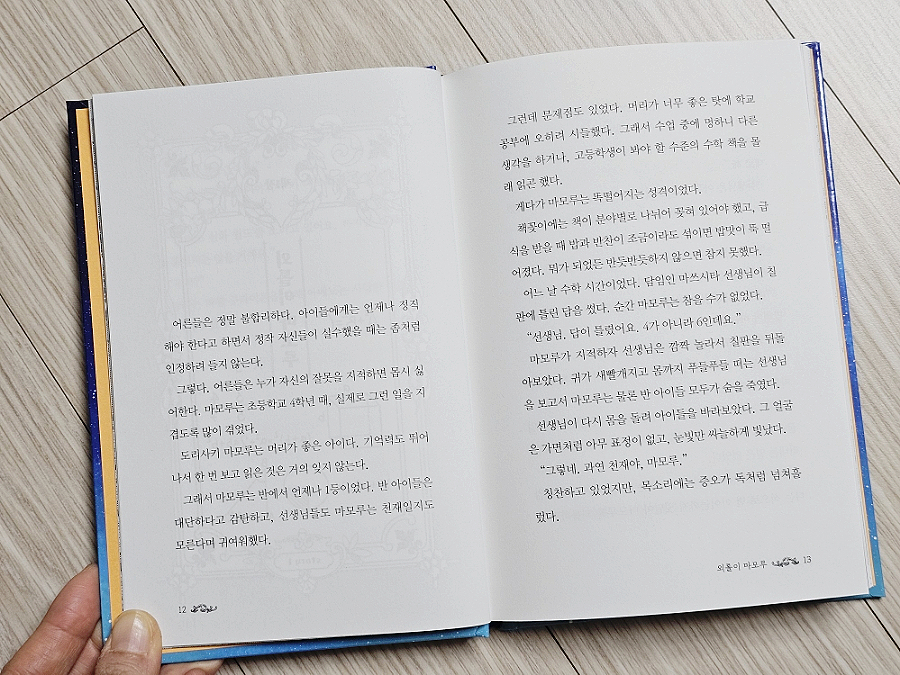 어른들은 정말 불합리하다. 아이들에게는 언제나 정직
해야 한다고 하면서 정작 자신들이 실수했을 때는 좀처럼
인정하려 들지 않는다.
그렇다. 어른들은 누가 자신의 잘못을 지적하면 몹시 싫
어한다. 마모루는 초등학교 4학년 때, 실제로 그런 일을 지
겹도록 많이 겪었다.
도리사키 마모루는 머리가 좋은 아이다. 기억력도 뛰어
나서 한 번 보고 읽은 것은 거의 잊지 않는다.
그래서 마모루는 반에서 언제나 1등이었다. 반 아이들은
대단하다고 감탄하고, 선생님들도 마모루는 천재일지도
모른다며 귀여워했다.
12
그런데 문제점도 있었다. 머리가 너무 좋은 탓에 학교
공부에 오히려 시들했다. 그래서 수업 중에 멍하니 다른
생각을 하거나, 고등학생이 봐야 할 수준의 수학 책을 몰
래 읽곤 했다.
게다가 마모루는 똑떨어지는 성격이었다.
책꽂이에는 책이 분야별로 나뉘어 꽂혀 있어야 했고, 급
식을 받을 때 밥과 반찬이 조금이라도 섞이면 밥맛이 뚝 떨
어졌다. 뭐가 되었든 반듯반듯하지 않으면 참지 못했다.
어느 날 수학 시간이었다. 담임인 마쓰시타 선생님이 칠
판에 틀린 답을 썼다. 순간 마모루는 참을 수가 없었다.
“선생님. 답이 틀렸어요. 4가 아니라 6인데요.”
마모루가 지적하자 선생님은 깜짝 놀라서 칠판을 뒤돌
아보았다. 귀가 새빨개지고 몸까지 푸들푸들 떠는 선생님
을 보고서 마모루는 물론 반 아이들 모두가 숨을 죽였다.
선생님이 다시 몸을 돌려 아이들을 바라보았다. 그 얼굴
은 가면처럼 아무 표정이 없고, 눈빛만 싸늘하게 빛났다.
“그렇네. 과연 천재야, 마모루.”
칭찬하고 있었지만, 목소리에는 증오가 독처럼 넘쳐흘
렀다.
외톨이 마모루 13